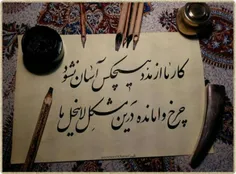 کار ما از مدد هیچکس آسان نشود
چرخ وامانده درین مشکل لاینحل ما